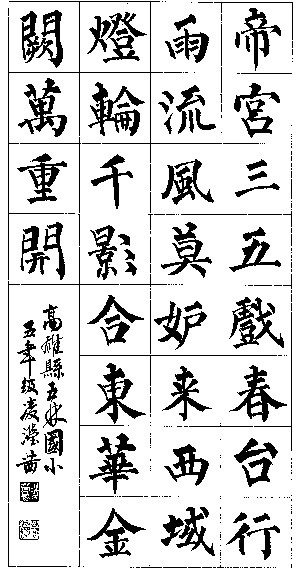 帝宮三五戲春台行
雨流風莫妒来西域
燈輪千影合東華金
闕萬重開
高雄縣五林國小
五年級